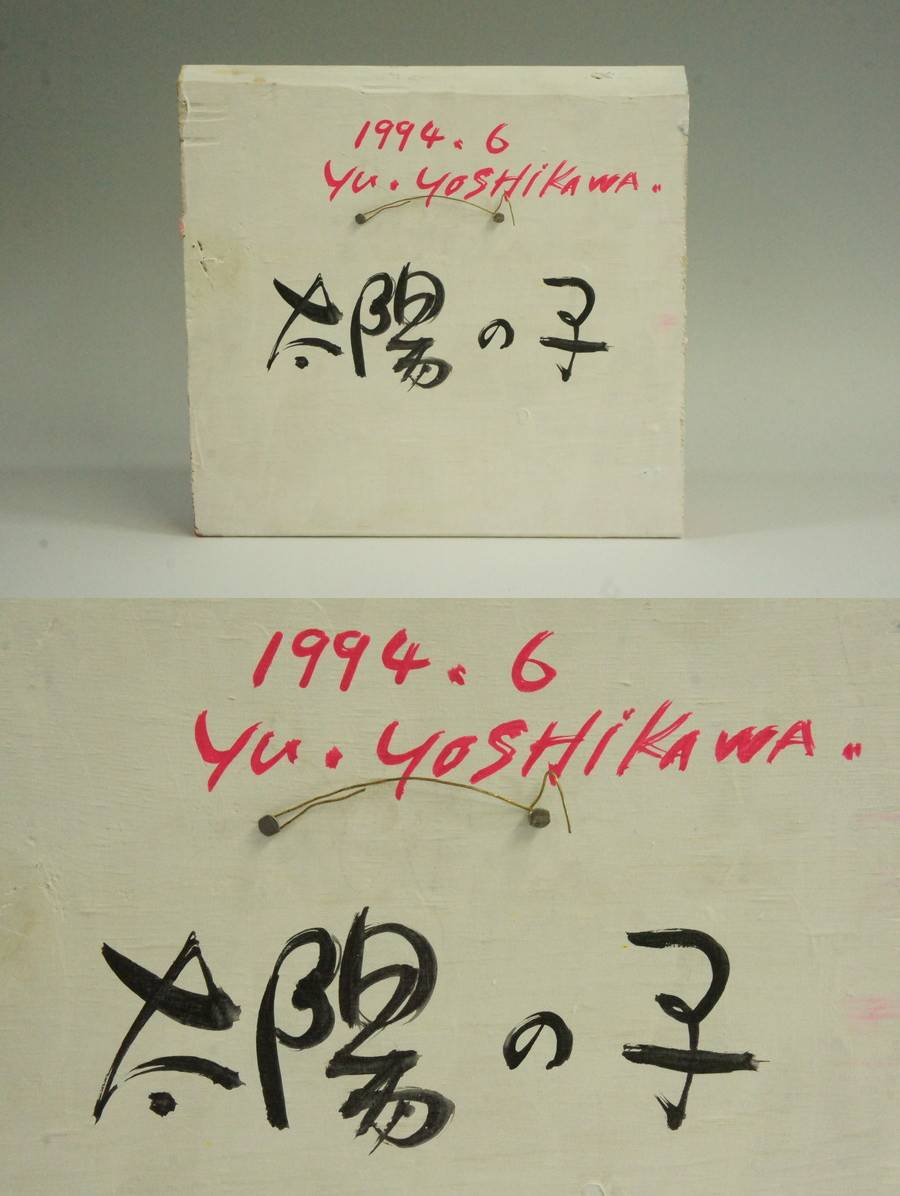 1994. 6
Yu. YOSHiKAWA.
太陽の子
1994. 6
Yu. YOSHiKAWA.
太陽の子